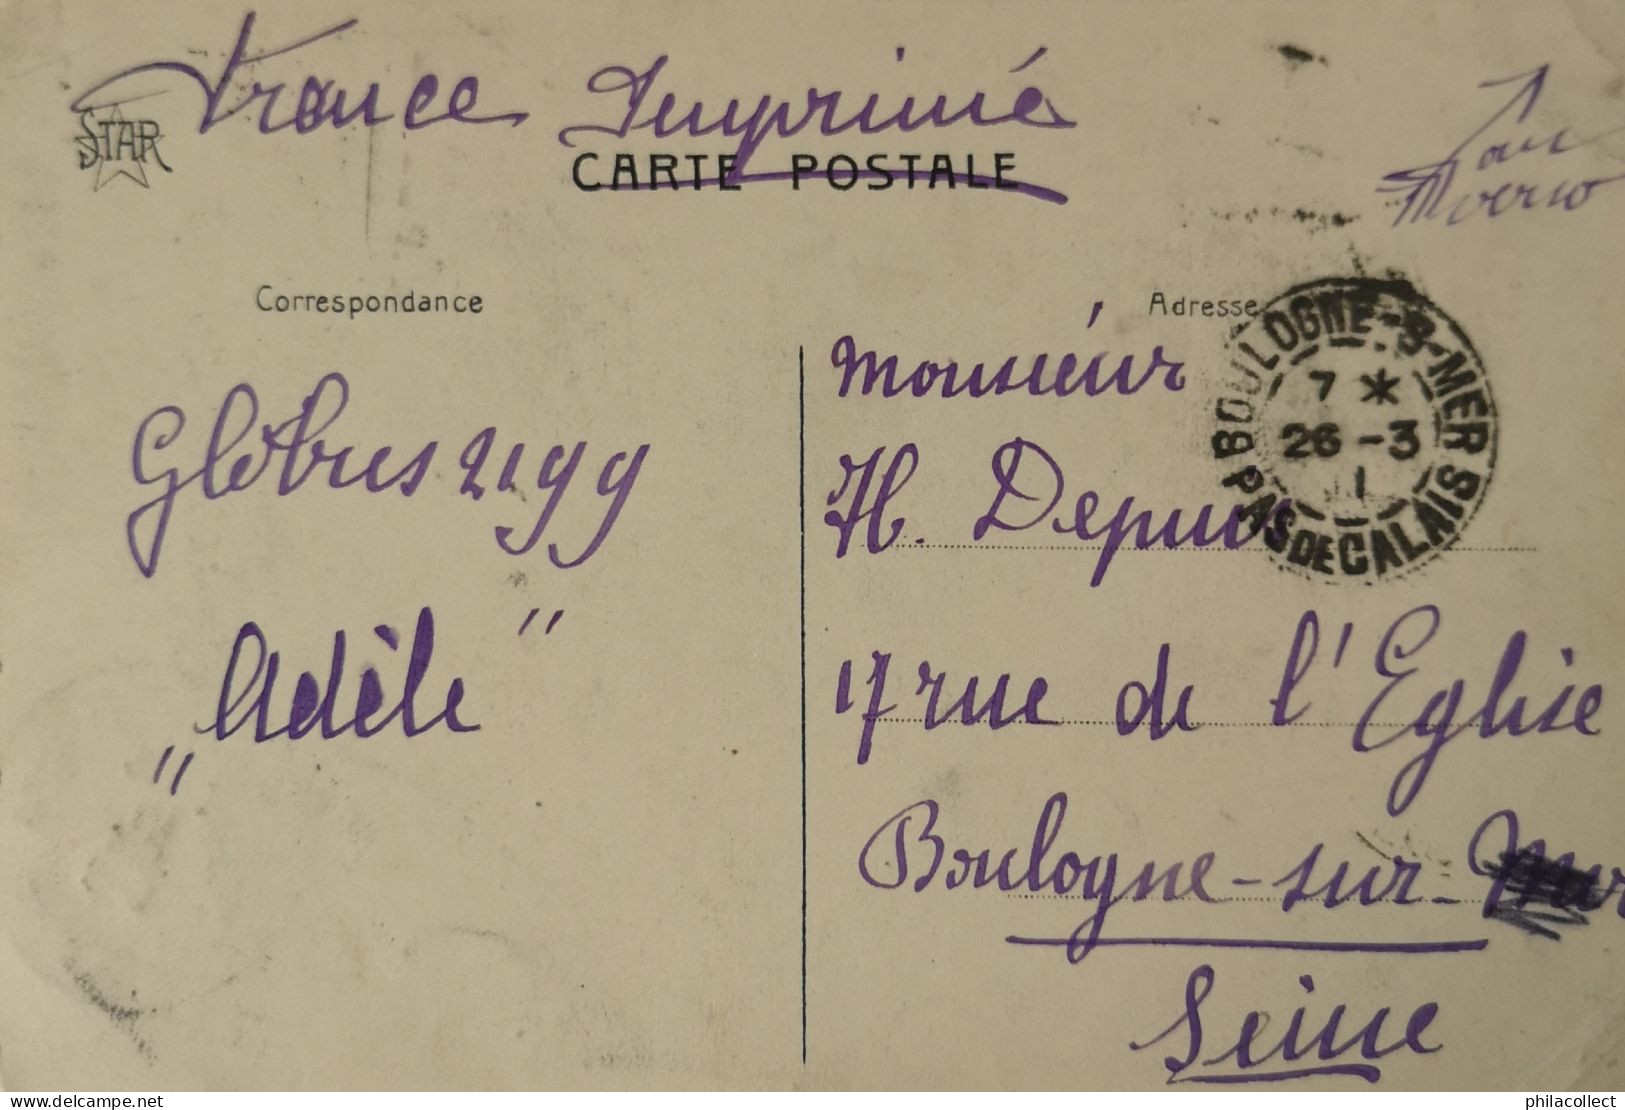 France Imprimé
STAR
CARTE POSTALE
verso
Correspondance
Adresse
BOULOGNE-S-MER
7 *
26 -3
1
PAS DE CALAIS
Monsieur
Globus 2199
H. Depuis
„Adèle"
17 rue de l'Eglise
Boulogne-sur-Mer
Seine
delcampe.net
philacollect